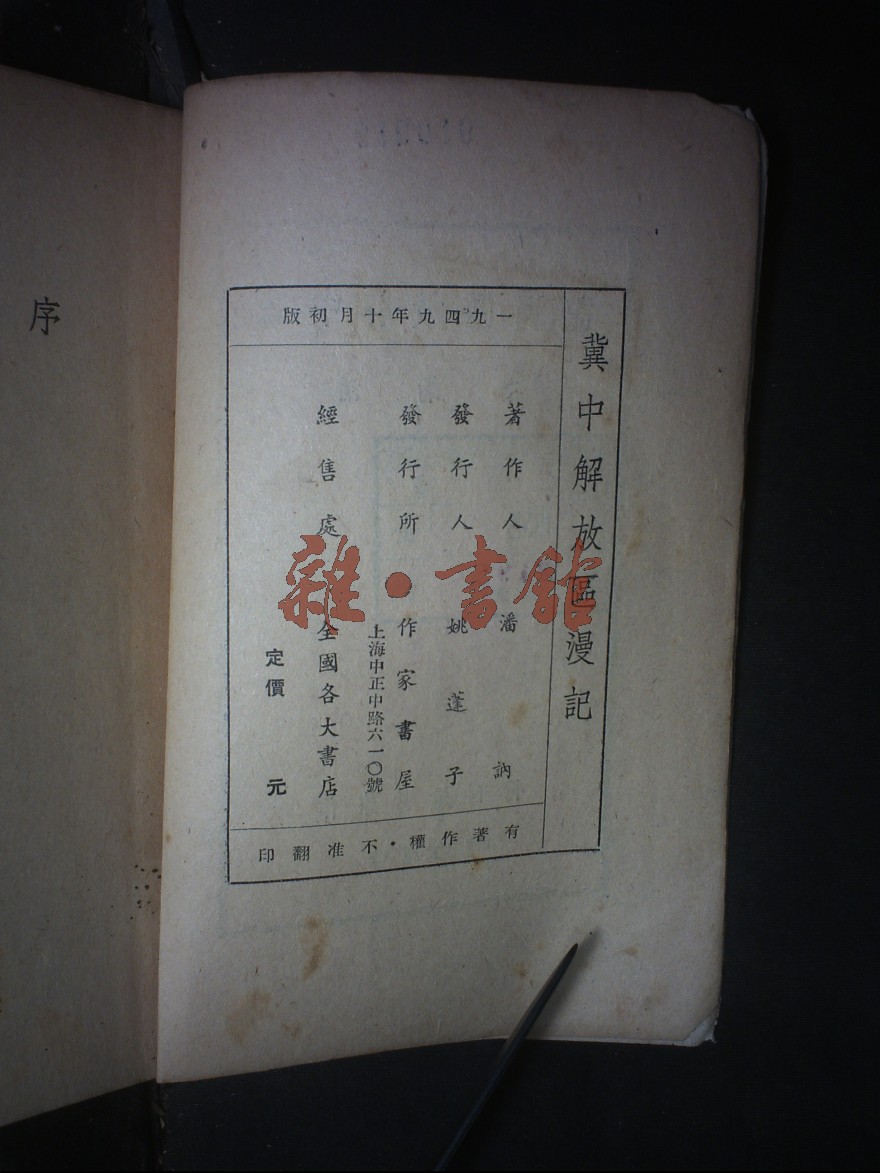 冀中解放區漫記
一九四九年十月初版
著作人 潘訥
發行人 姚蓬子
發行所 作家書屋
上海中正中路六一〇號
經售處 全國各大書店
定價 元
有著作權·不准翻印
序
雜·書館